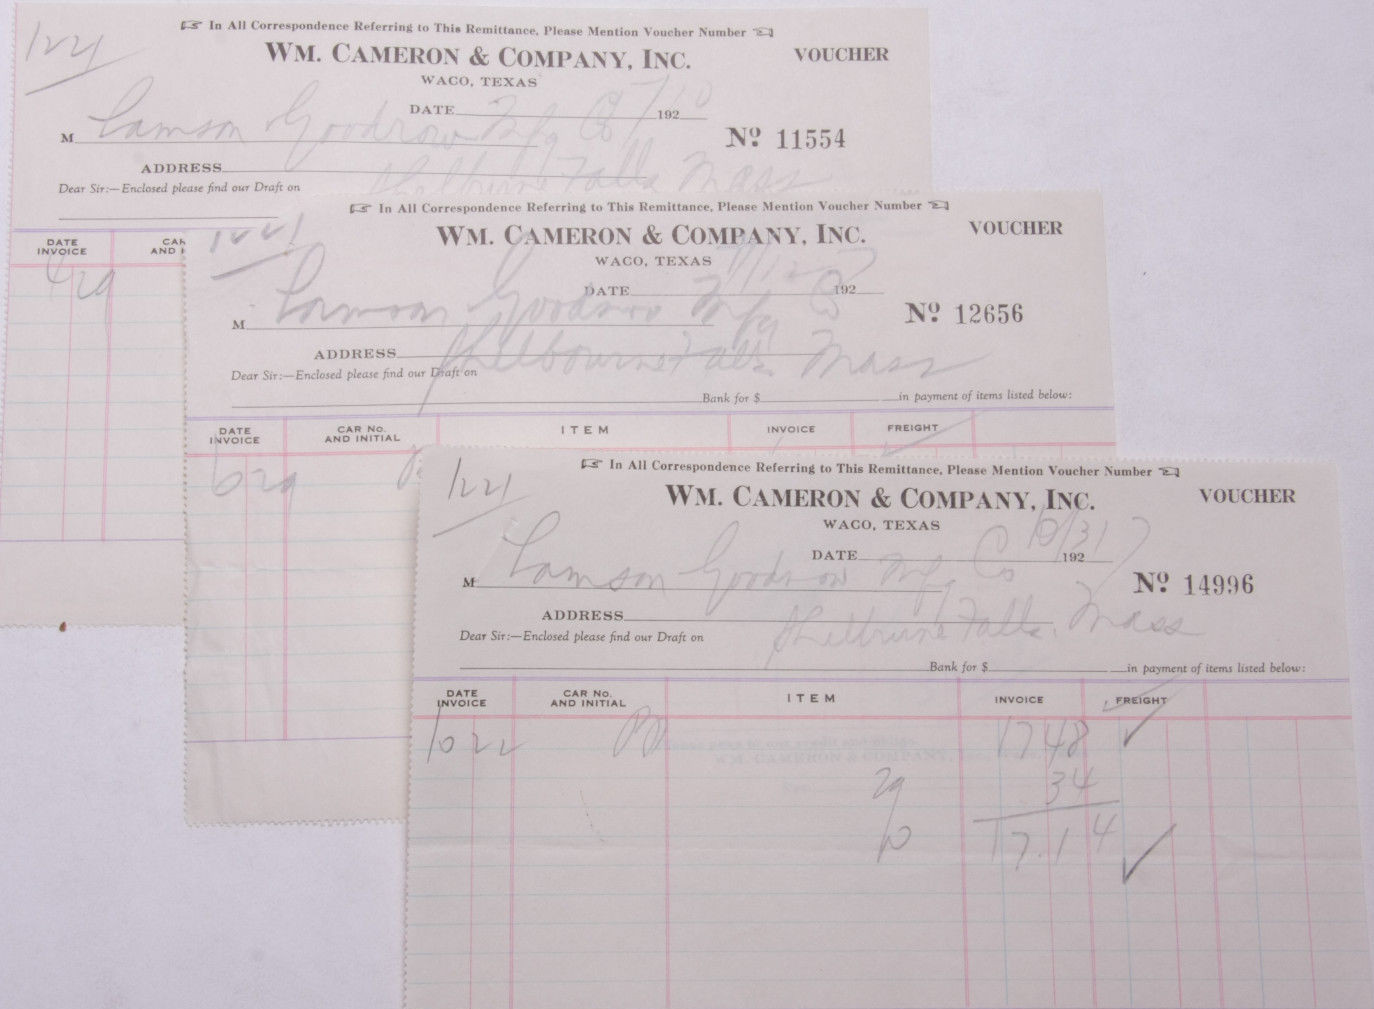 In All Correspondence Referring to This Remittance, Please Mention Voucher Number
1221
WM. CAMERON & COMPANY, INC.
VOUCHER
WACO, TEXAS
DATE 192
M Lamson Goodnow Mfg Co
Nº 11554
ADDRESS Shelburne Falls Mass
Dear Sir:—Enclosed please find our Draft on
DATE INVOICE
CAR
AND I
429
In All Correspondence Referring to This Remittance, Please Mention Voucher Number
1221
WM. CAMERON & COMPANY, INC.
VOUCHER
WACO, TEXAS
DATE 192
M Lamson Goodnow Mfg Co
Nº 12656
ADDRESS Shelbourne Falls Mass
Dear Sir:—Enclosed please find our Draft on
Bank for $ in payment of items listed below:
DATE INVOICE
CAR No. AND INITIAL
ITEM
INVOICE
FREIGHT
629
In All Correspondence Referring to This Remittance, Please Mention Voucher Number
1221
WM. CAMERON & COMPANY, INC.
VOUCHER
WACO, TEXAS
DATE 10/31 192 7
M Lamson Goodnow Mfg Co
Nº 14996
ADDRESS Shelburne Falls. Mass
Dear Sir:—Enclosed please find our Draft on
Bank for $ in payment of items listed below:
DATE INVOICE
CAR No. AND INITIAL
ITEM
INVOICE
FREIGHT
10 22 17 48
34
17.14